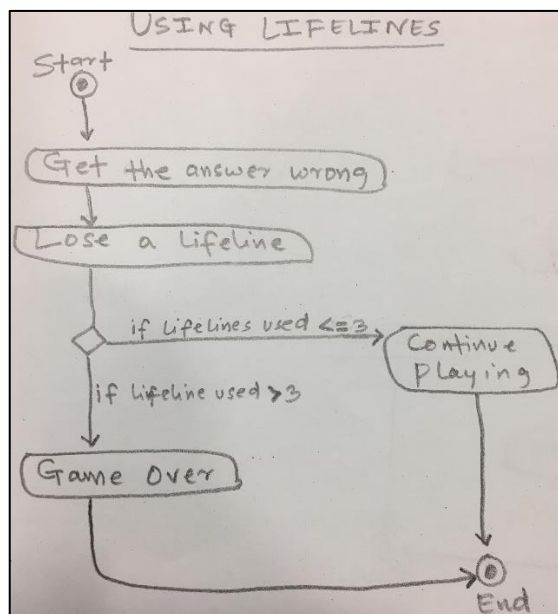 USING LIFELINES
Start
Get the answer wrong
Lose a lifeline
if lifelines used <=3
Continue
playing
if lifeline used >3
Game Over
End